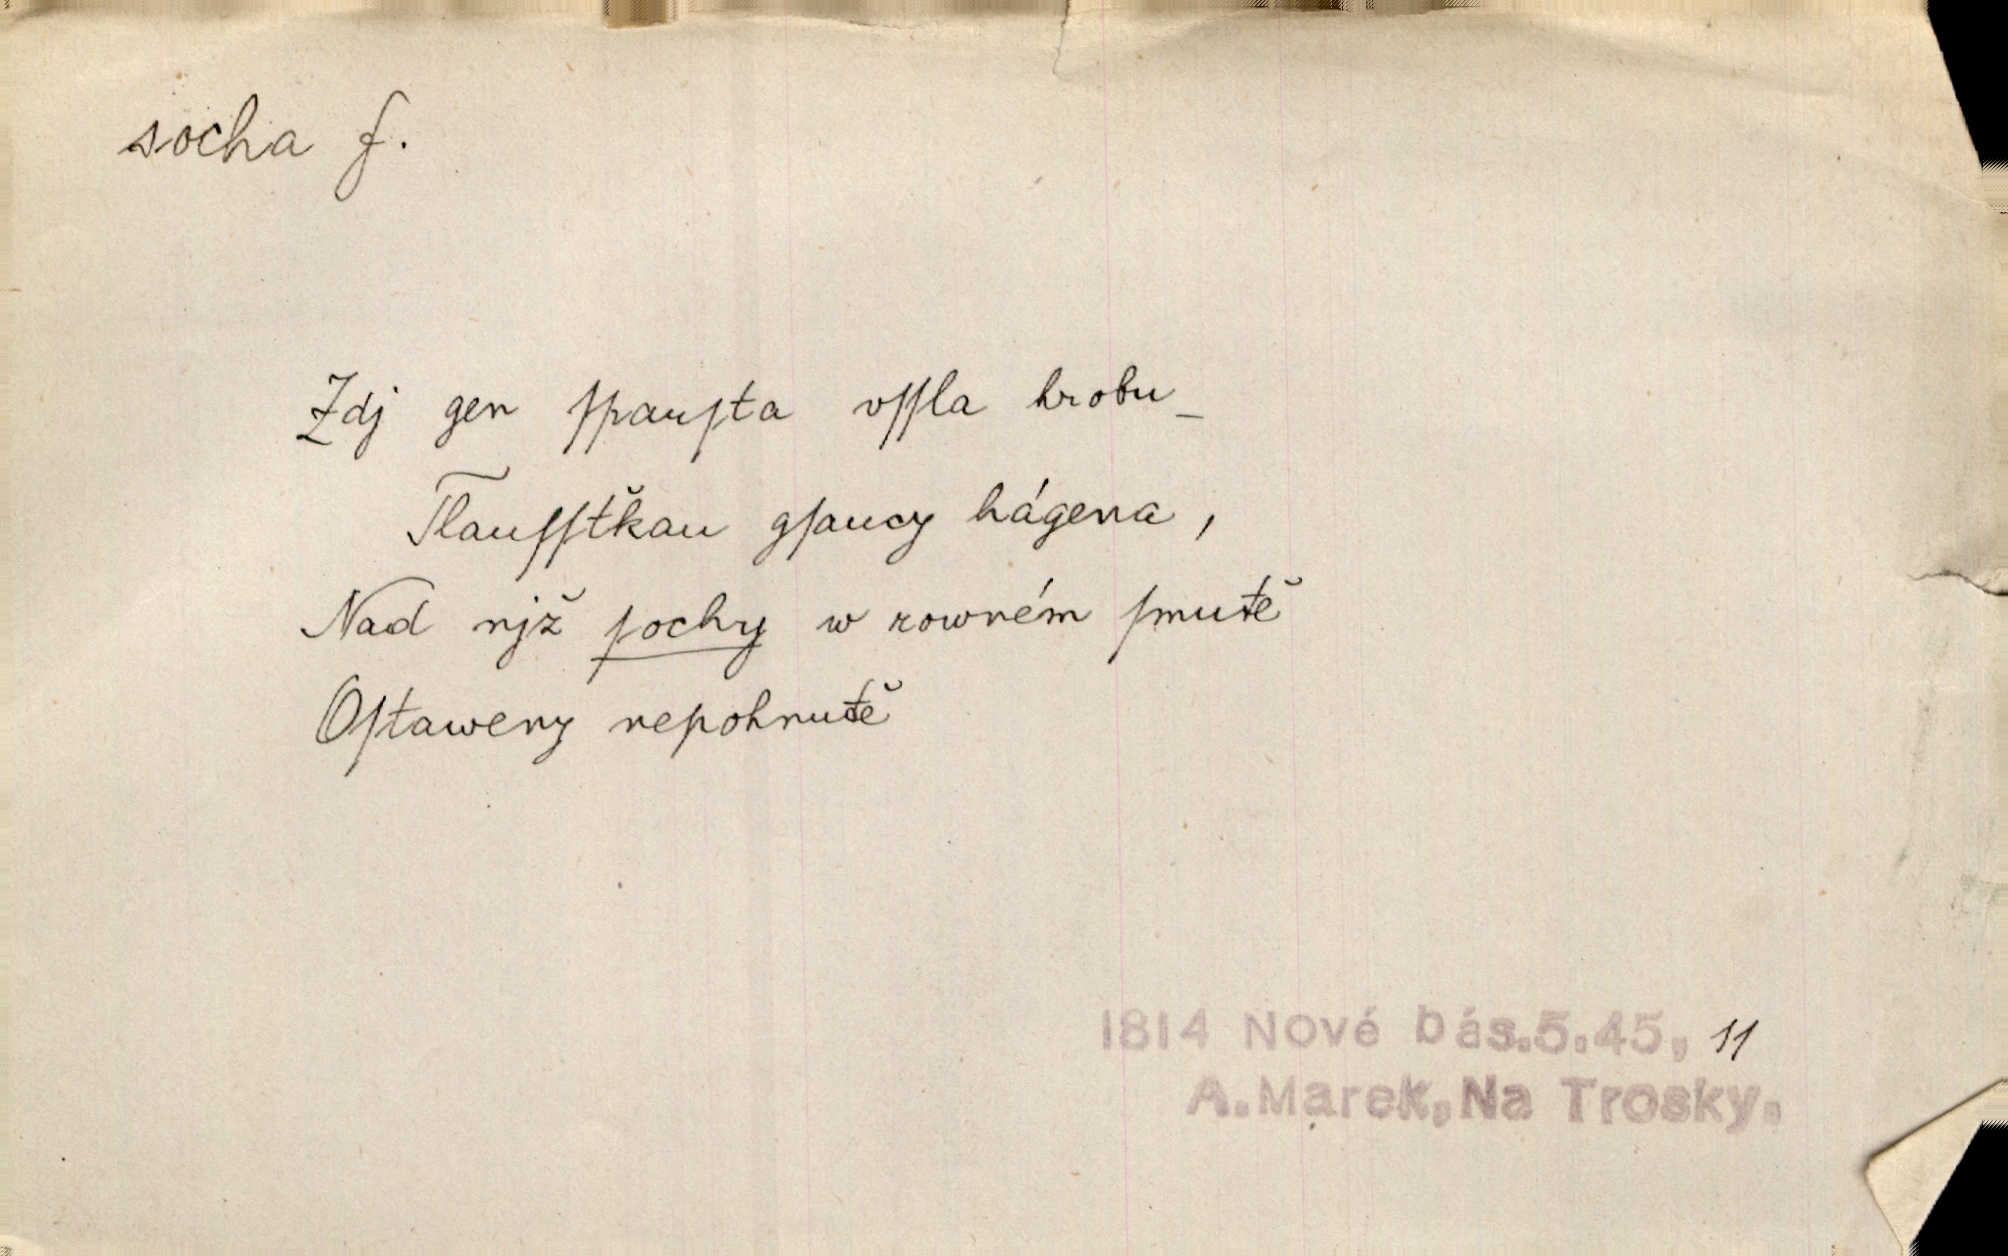 socha f.
Zdj gen ſpauſta vſſla hrobu_
Tlauſſťkau gſaucy hágena,
Nad njž ſochy w rowném ſmutě
Oſtaweny nepohnutě
1814 Nové bás.5.45, 11
A.Marek,Na Trosky.